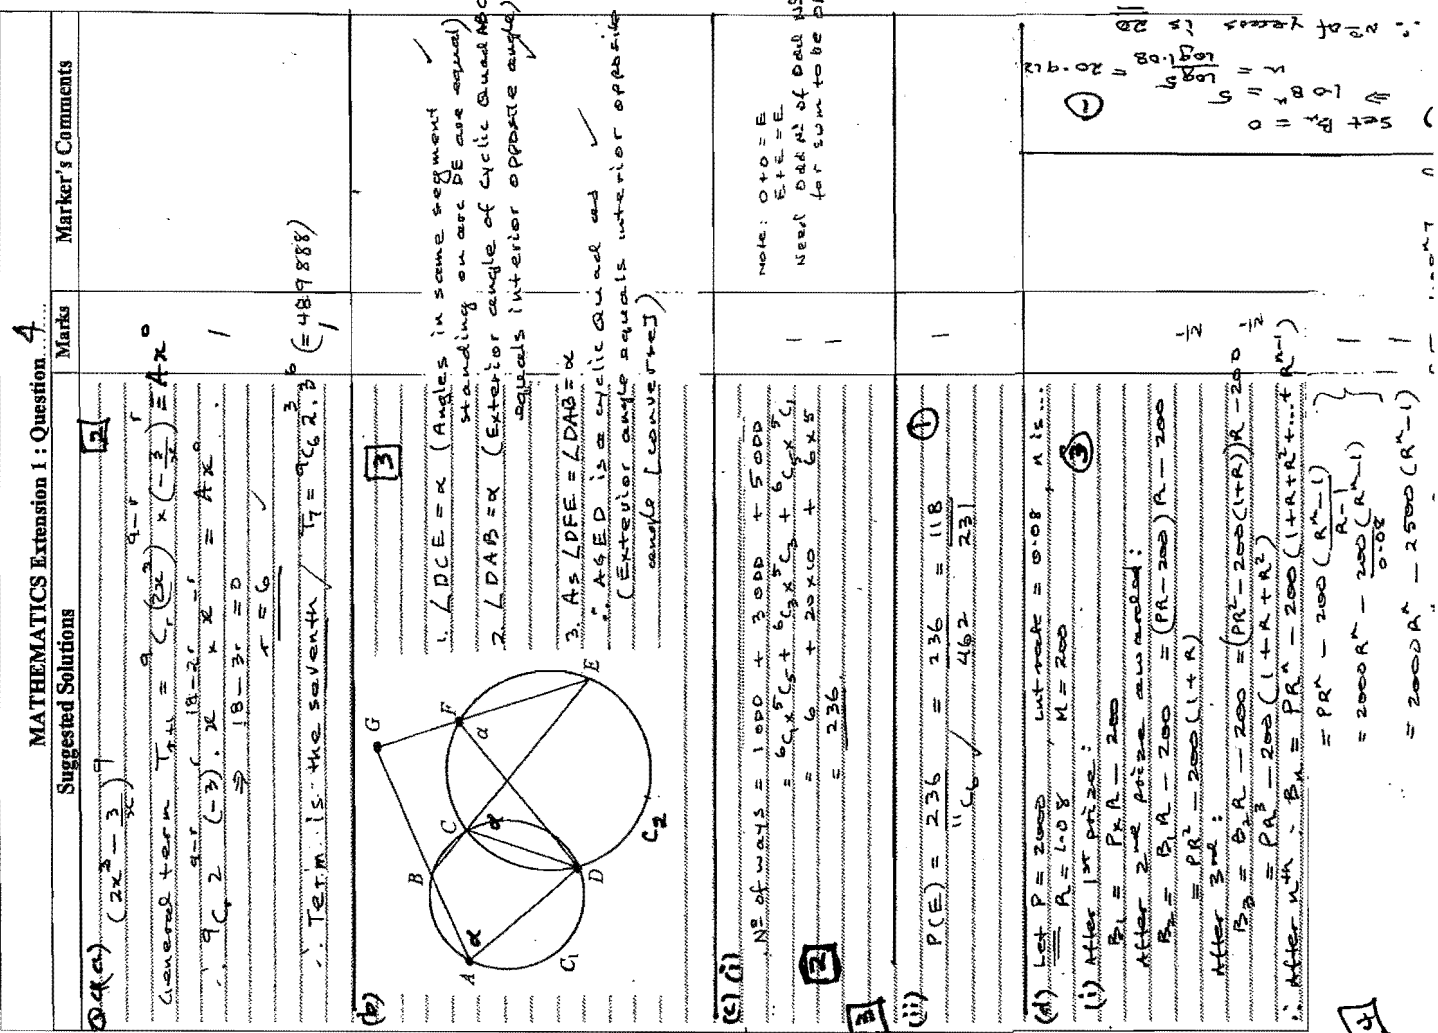 MATHEMATICS Extension 1 : Question 4
Suggested Solutions
Marks
Marker's Comments
Q4(a)
(2x² − 3/x)⁹
2
General term Tᵣ₊₁ = ⁹Cᵣ (2x²)⁹⁻ʳ × (−3/x)ʳ = Ax⁰
∴ ⁹Cᵣ 2⁹⁻ʳ (−3)ʳ . x¹⁸⁻²ʳ × x⁻ʳ = Ax⁰ .
1
⇒ 18 − 3r = 0
r = 6 ✓
∴ Term is the seventh / T₇ = ⁹C₆ 2³.3⁶ (= 489888)
1
(b)
3
A
B
C
D
E
F
G
C₁
C₂
α
α
α
1. ∠DCE = α (Angles in same segment
standing on arc DE are equal) ✓
2. ∠DAB = α (Exterior angle of cyclic quad ABC
equals interior opposite angle) ✓
3. As ∠DFE = ∠DAB = α
∴ AGED is a cyclic quad as ✓
(Exterior angle equals interior opposite
angle [converse])
(c) (i)
Nº of ways = 1 ODD + 3 ODD + 5 ODD
= ⁶C₁ x ⁵C₅ + ⁶C₃ x ⁵C₃ + ⁶C₅ x ⁵C₁
= 6 + 20×10 + 6×5
1
= 236
1
2
Note: O+O = E
E+E = E
Need odd Nº of odd Nº
for sum to be
3
(ii)
1
P(E) = 236/¹¹C₆ = 236/462 = 118/231
1
(d) Let P = 2000, int rate = 0.08, n is...
R = 1.08, M = 200
3
(i) After 1st prize:
B₁ = PR − 200
After 2nd prize awarded:
B₂ = B₁R − 200 = (PR − 200)R − 200
= PR² − 200(1 + R)
½
After 3rd:
B₃ = B₂R − 200 = (PR² − 200(1+R))R − 200
½
= PR³ − 200(1 + R + R²)
∴ After nth. Bₙ = PRⁿ − 200(1+R+R²+...+Rⁿ⁻¹)
4
= PRⁿ − 200(Rⁿ − 1)/R − 1
1
= 2000Rⁿ − 200(Rⁿ − 1)/0.08
= 2000Rⁿ − 2500(Rⁿ − 1)
1
Set Bₙ = 0
⇒ 1.08ⁿ = 5
n = log 5/log 1.08 = 20.912
∴ nº of years is 20
1